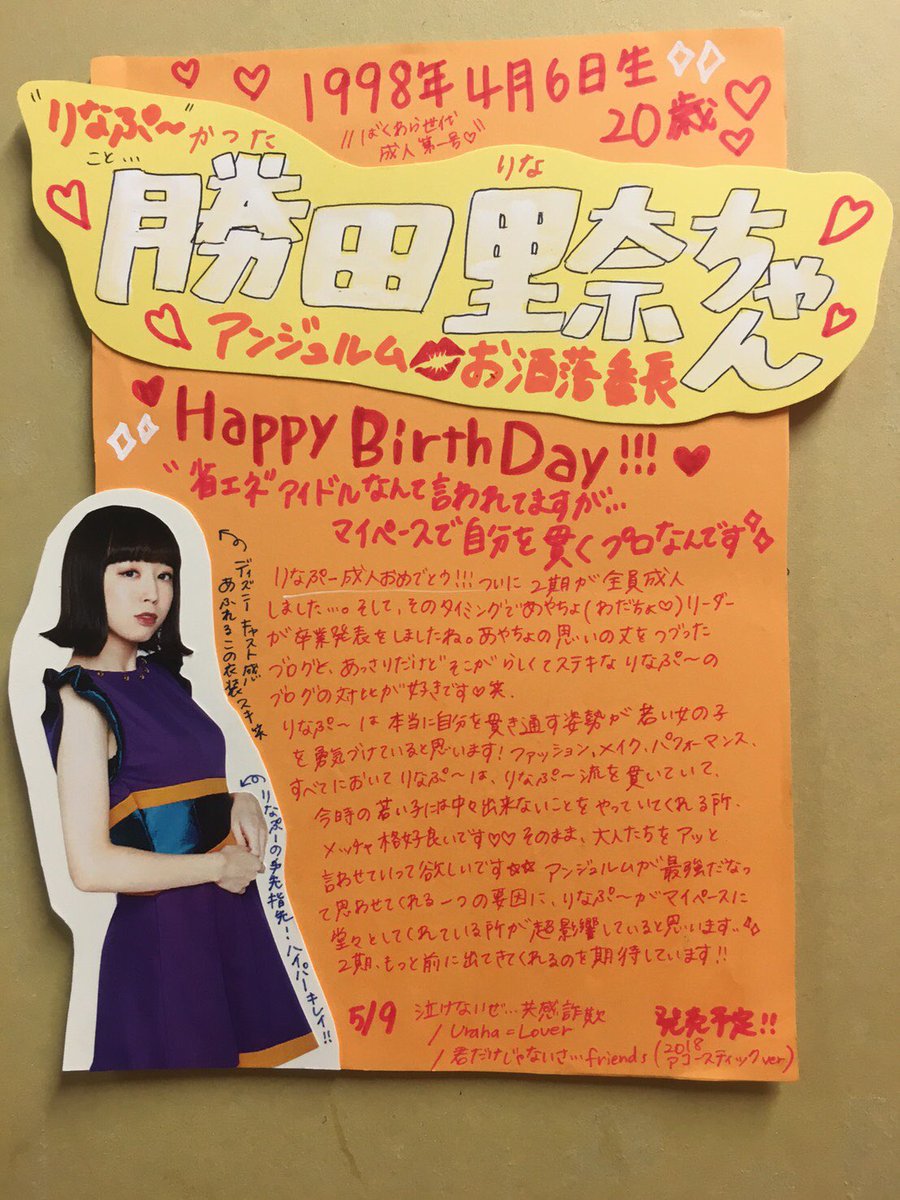 1998年4月6日生
20歳
"ばくわら世代
成人第一号♡"
"りなぷ〜"
こと…
かった
りな
勝田里奈ちゃん
アンジュルム💋お洒落番長
Happy BirthDay!!!
"省エネ"アイドルなんて言われてますが…
マイペースで自分を貫くプロなんです
りなぷー成人おめでとう!!! ついに2期が全員成人
しました…。そして、そのタイミングであやちょ(わだちょ♡)リーダー
が卒業発表をしましたね。あやちょの思いの丈をつづった
ブログと、あっさりだけどそこがらしくてステキなりなぷ〜の
ブログの対比が好きです♡笑.
りなぷ〜は本当に自分を貫き通す姿勢が若い女の子
を勇気づけていると思います!ファッション、メイク、パフォーマンス、
すべてにおいてりなぷ〜は、りなぷ〜流を貫いていて、
今時の若い子には中々出来ないことをやっていてくれる所、
メッチャ格好良いです♡♡ そのまま、大人たちをアッと
言わせていって欲しいです☆☆ アンジュルムが最強だなっ
て思わせてくれる一つの要因に、りなぷ〜がマイペースに
堂々としてくれている所が超影響していると思います。
2期、もっと前に出てきてくれるのを期待しています!!
ディズニーキャスト感
あふれるこの衣装スキ笑
りなぷーの手先指先!ハイパーキレイ!!
5/9 泣けないぜ…共感詐欺
/Uraha=Lover
/君だけじゃないさ…friends(2018アコースティックver)
発売予定!!